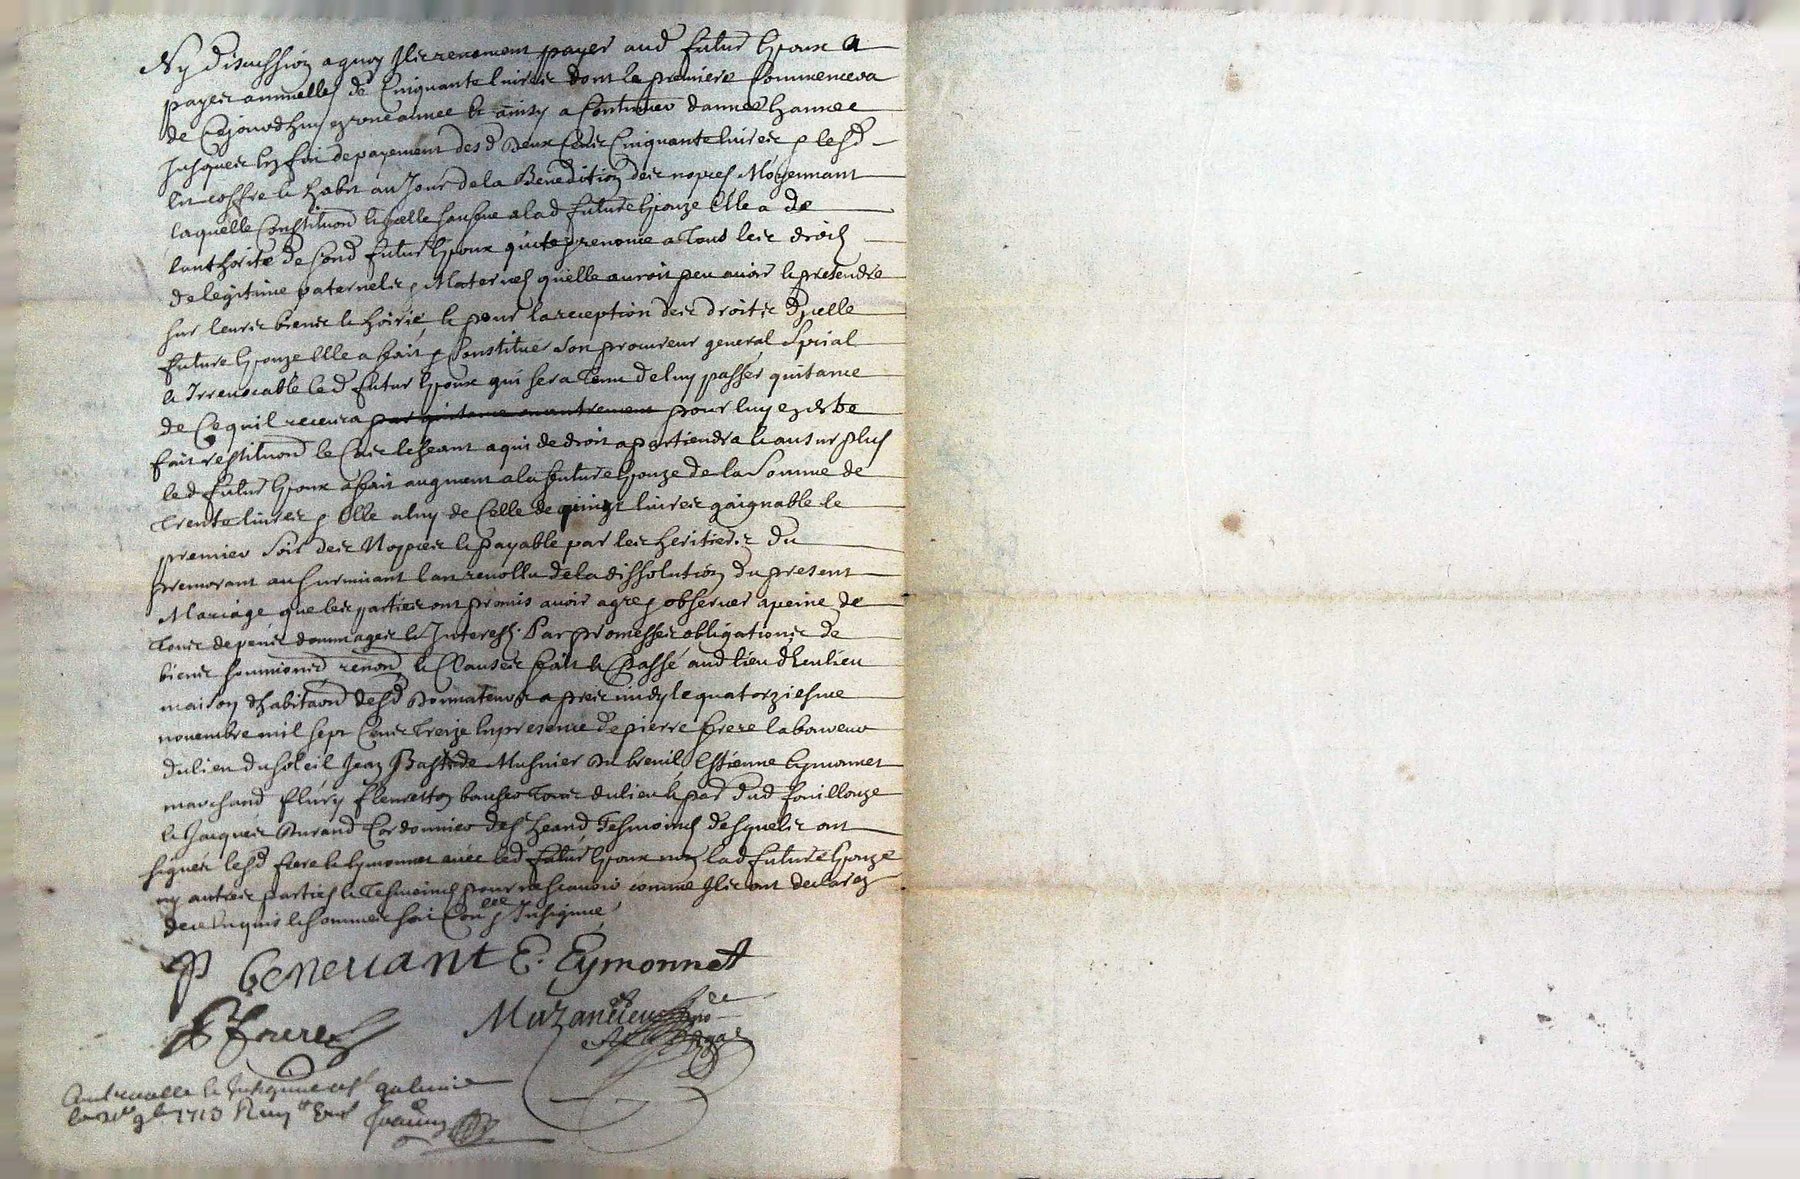 Ny discussion a quoy Ils seront payer aud futur Espoux a
payer annuelles de Cinquante livres dont la premiere Commencera
de Cejourdhuy en une annee et ainsy a Continuer dannee en annee
Jusques en fin depayement desd deux Cens Cinquante livres & lesd
lit coffre et habit au Jour de la Benediction des nopces Moyennant
laquelle Constituon et icelle faite a lad future Espouze Elle a de
lauthorite de sond futur Espoux quite & renonce a Tous les droits
delegitime paternels & Maternels quelle auroit peu avoir et pretendre
sur leurs biens et hoirie, et pour la reception des droits dicelle
future Espouze Elle a fait & Constitue son procureur general Special
et Irrevocable led futur Espoux qui sera Tenu de luy passer quitance
de Cequil recevra pour luy en estre
fait restituon le Cas lecheant a qui de droit apartiendra et au surplus
led futur Espoux a fait augment a la future Espouze de la Somme de
Trente livres & Elle a luy de Celle de quinze livres gaignable le
premier soir des Nopces et payable par les heritiers du
premourant au survivant lan revollu de la dissolution du present
Mariage que les parties ont promis avoir agre & observer a peine de
Tous depens dommages et Interests. Par promesses obligations de
biens soumions renons et Clauses fait et Passé aud lieu
maison dhabitaon desd Donnateurs apres midy le quatorziesme
novembre mil sept Cens Treize En presence de pierre frere laboureur
du lieu du soleil Jean Bastide Musnier du breuil Estienne Eymonnet
marchand flury fleuretton Tous du lieu et par dud fouillouze
et Jacques Durand Cordonnier Tesmoins desquels ont
signes lesd frere et Eymonnet avec led futur Espoux non lad future Espouze
ny autres parties et Tesmoins pour ne scavoir comme Ils ont declarez
de ce Enquis et sommes soit Conlee & Insinué
P beneuant E. Eymonnet
P frere
Mazancieu no
Controlle et Insinué a st galmier
le 9bre 1713 Reçu